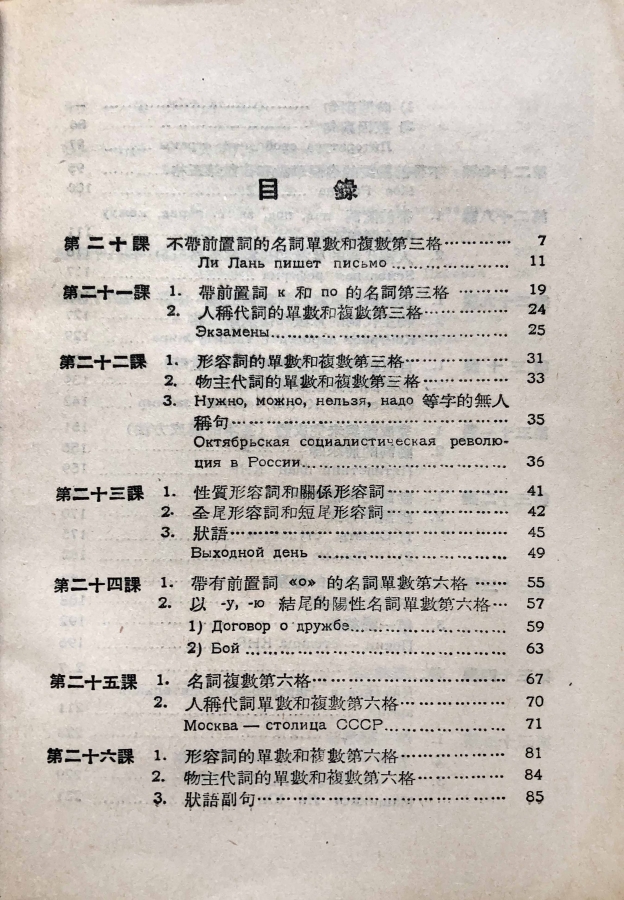 目錄
第二十課 不帶前置詞的名詞單數和複數第三格············ 7
Ли Лань пишет письмо............... 11
第二十一課 1. 帶前置詞 к 和 по 的名詞第三格 ········· 19
2. 人稱代詞的單數和複數第三格··············· 24
Экзамены................................. 25
第二十二課 1. 形容詞的單數和複數第三格·················· 31
2. 物主代詞的單數和複數第三格··············· 33
3. Нужно, можно, нельзя, надо 等字的無人
稱句······································· 35
Октябрьская социалистическая револю-
ция в России.............................. 36
第二十三課 1. 性質形容詞和關係形容詞····················· 41
2. 全尾形容詞和短尾形容詞····················· 42
3. 狀語·········································· 45
Выходной день ........................... 49
第二十四課 1. 帶有前置詞 «о» 的名詞單數第六格 ······ 55
2. 以 -у, -ю 結尾的陽性名詞單數第六格··· 57
1) Договор о дружбе..................... 59
2) Бой .................................... 63
第二十五課 1. 名詞複數第六格······························ 67
2. 人稱代詞單數和複數第六格·················· 70
Москва — столица СССР............... 71
第二十六課 1. 形容詞的單數和複數第六格·················· 81
2. 物主代詞的單數和複數第六格··············· 84
3. 狀語副句···································· 85